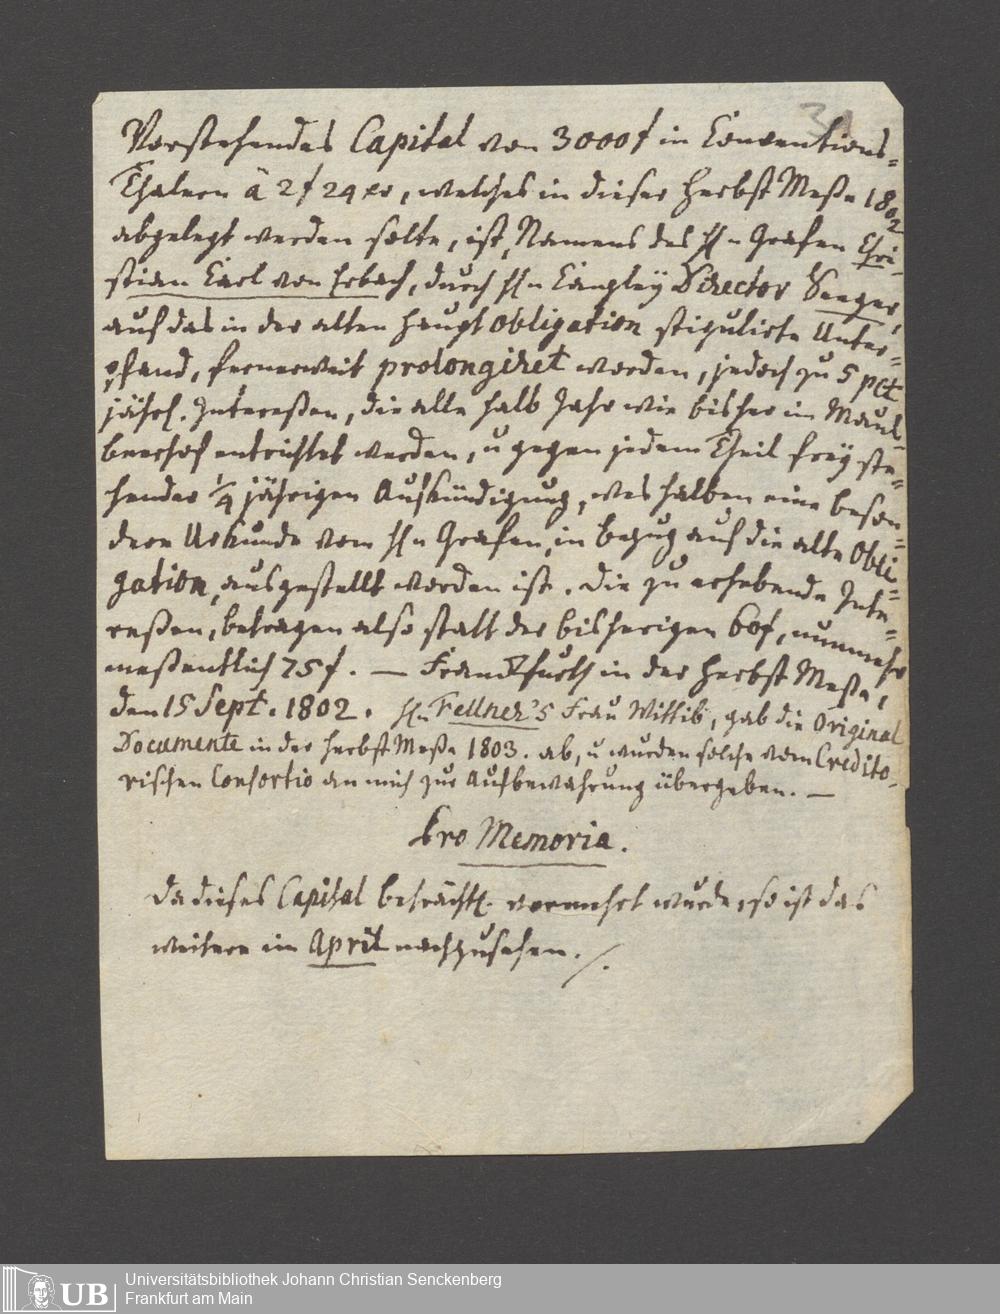 31
Vorstehendes Capital von 3000 f in Conventions-
Thalern â 2 f 24 xr, welches in dieser Herbst Meße 1802
abgelegt werden solte, ist, Namens des Hn Grafen Chri-
stian Carl von Erbach, durch Hn Canzley Director Seeger,
auf das in der alten Haupt Obligation stipulirte Unter-
pfand, fernerweit prolongiret worden, jedoch zu 5 pCt
jährl. Intereßen, die alle halb Jahr wie bisher im Maul-
beerhof entrichtet werden, u gegen jedem Theil frey ste-
hender 1/4 jährigen Aufkündigung, weshalben eine beson-
dere Urkunde vom Hn Grafen, in bezug auf die alte Obli-
gation, ausgestellt worden ist. Die zu erhebende Inte-
reßen, betragen also statt der bisherigen 60 f, nunmehr
meßentlich 75 f. — Franckfurth in der Herbst Meße,
den 15 Sept. 1802. Hn Fellner's Frau Wittib, gab die Original
Documente in der Herbst Meße 1803. ab, u wurden solche vom Credito-
rischen Consortio an mich zur Aufbewahrung übergeben. —
Pro Memoria.
Da dieses Capital beträchtl. vermehrt wurde, so ist das
weitere im April nachzusehen. /.
UB
Universitätsbibliothek Johann Christian Senckenberg
Frankfurt am Main